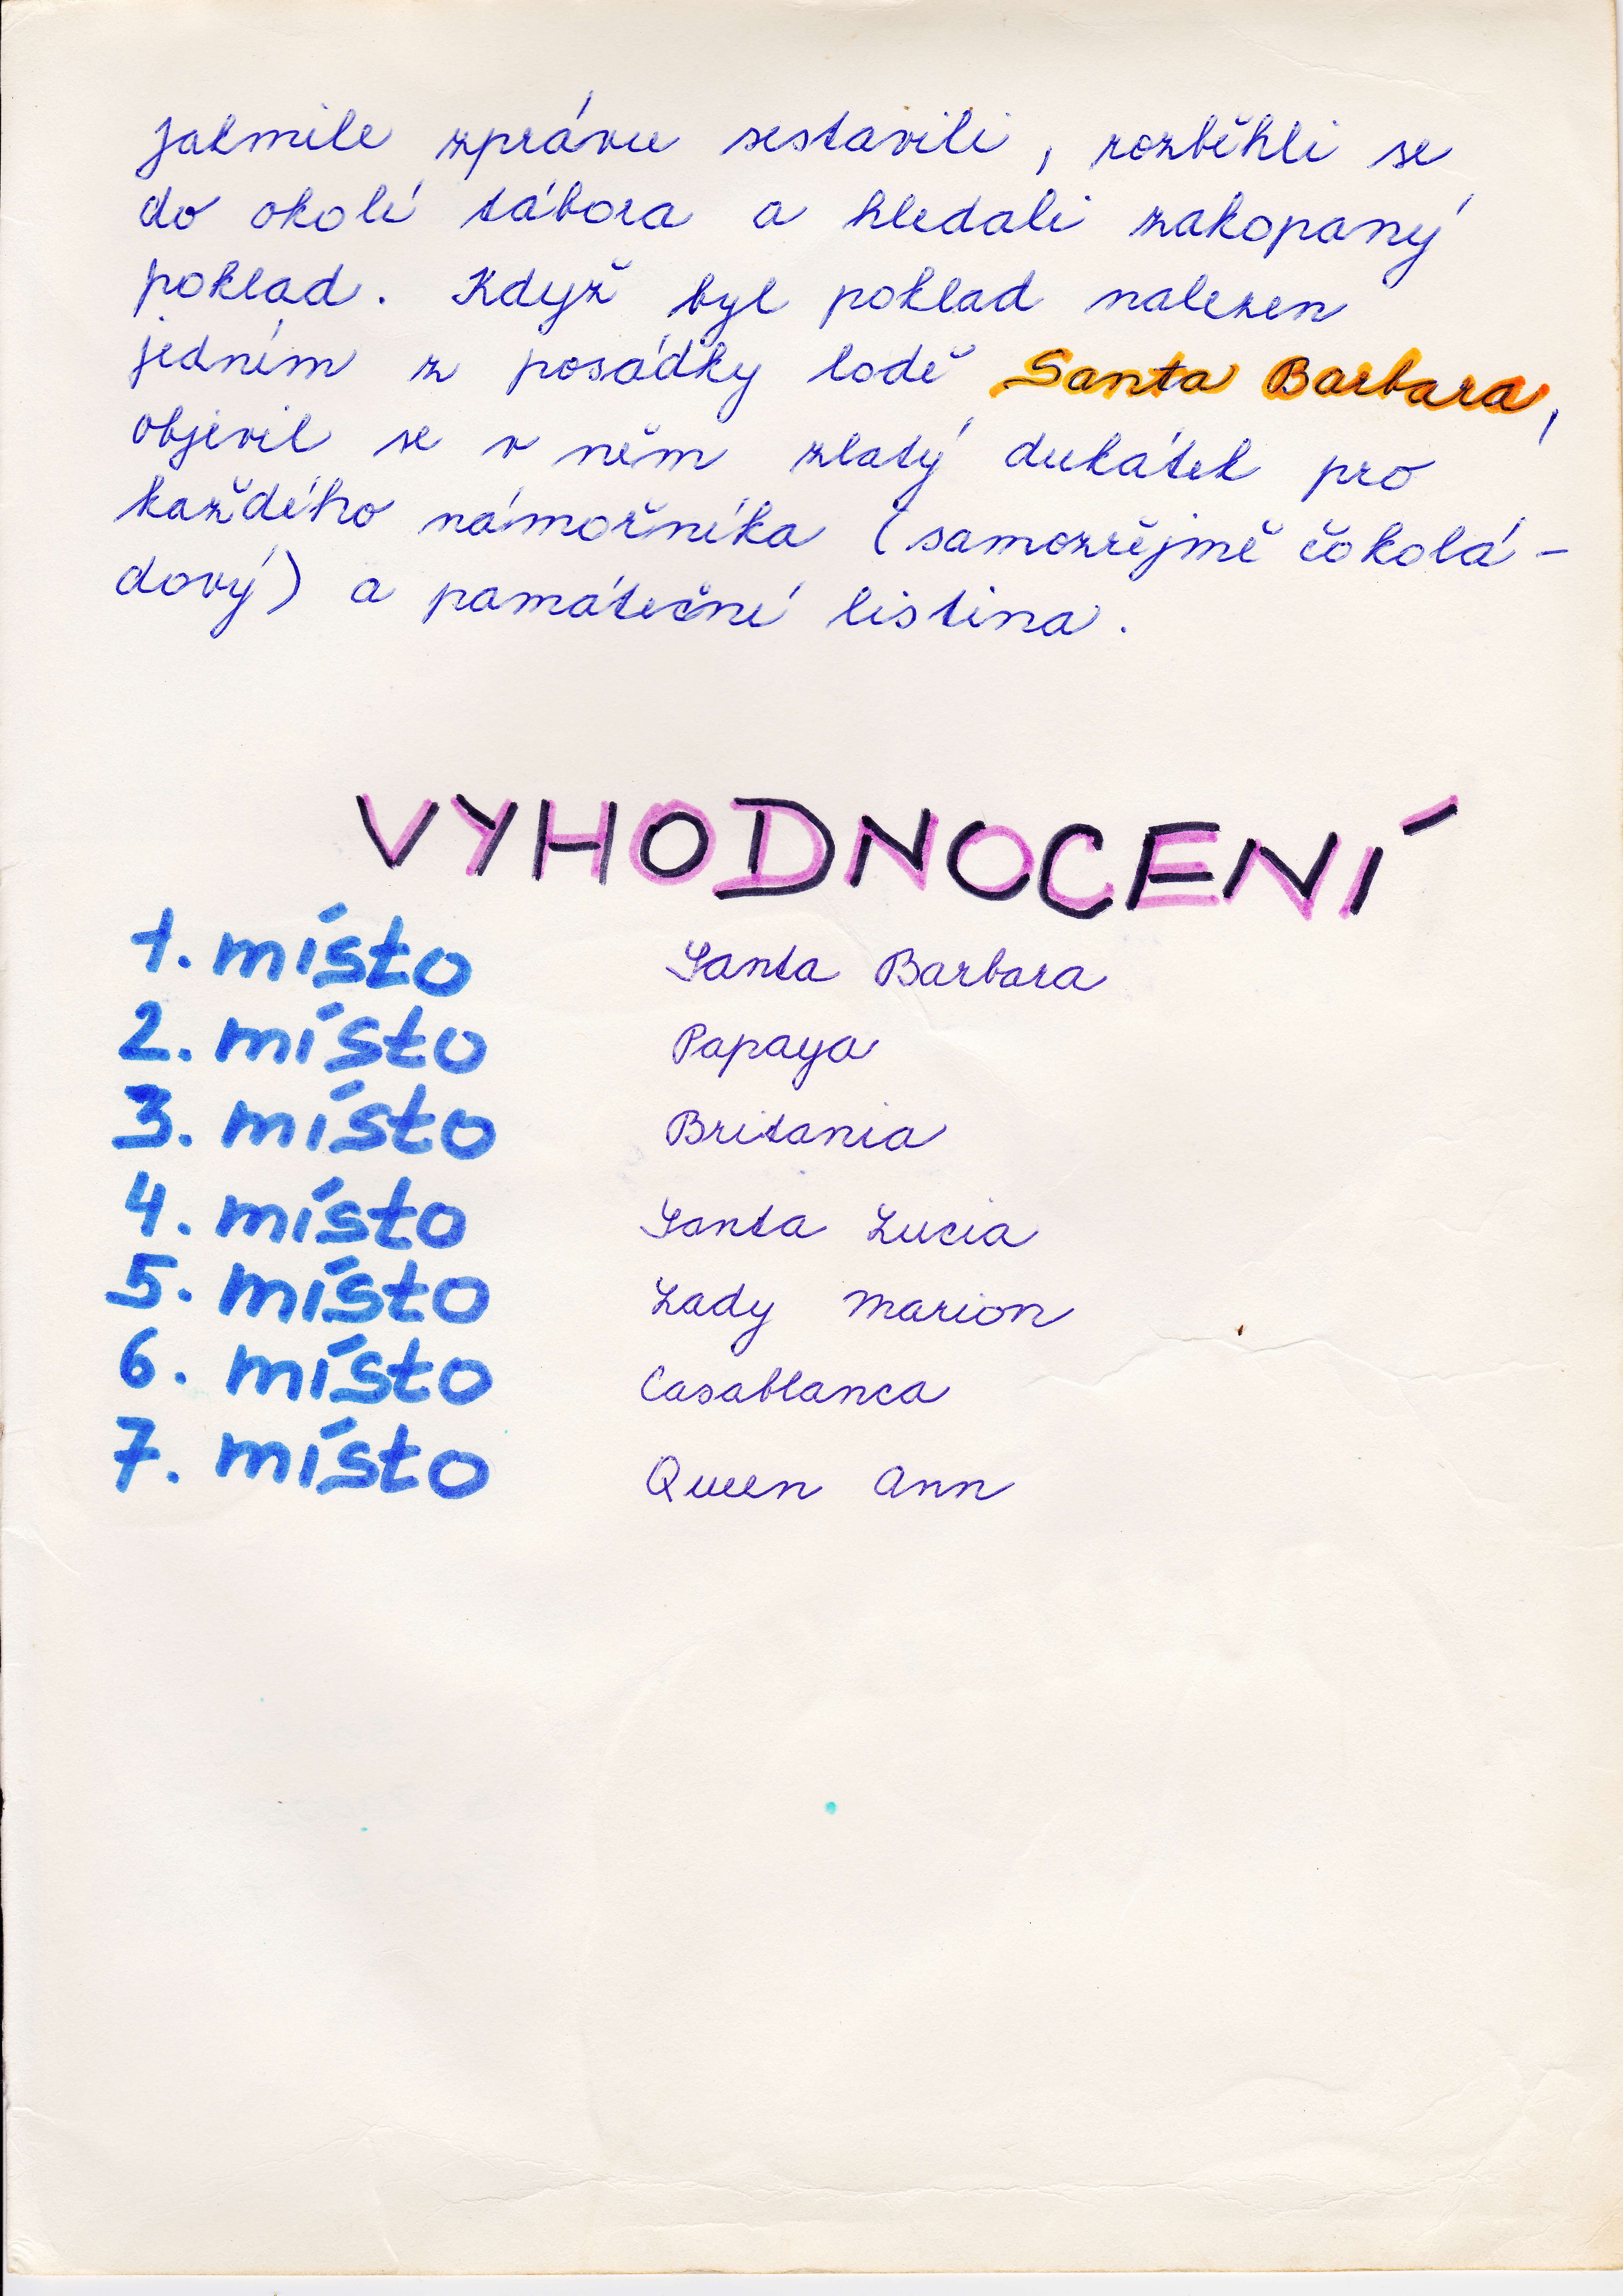 jakmile zprávu sestavili, rozběhli se
do okolí tábora a hledali zakopaný
poklad. Když byl poklad nalezen
jedním z posádky lodě Santa Barbara,
objevil se v něm zlatý dukátek pro
každého námořníka (samozřejmě čokolá-
dový) a památeční listina.
VYHODNOCENÍ
1. místo Santa Barbara
2. místo Papaya
3. místo Britania
4. místo Santa Lucia
5. místo Lady Marion
6. místo Casablanca
7. místo Queen Ann